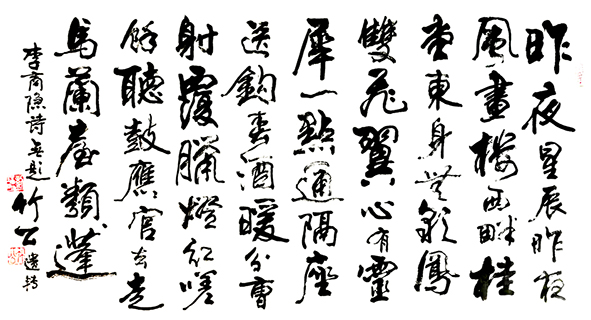 昨夜星辰昨夜
風畫樓西畔桂
堂東身無彩鳳
雙飛翼心有靈
犀一點通隔座
送鉤春酒暖分曹
射覆臘燈紅嗟
餘聽鼓應官去走
馬蘭臺類蓬
李商隱詩無題 竹公 遺轉